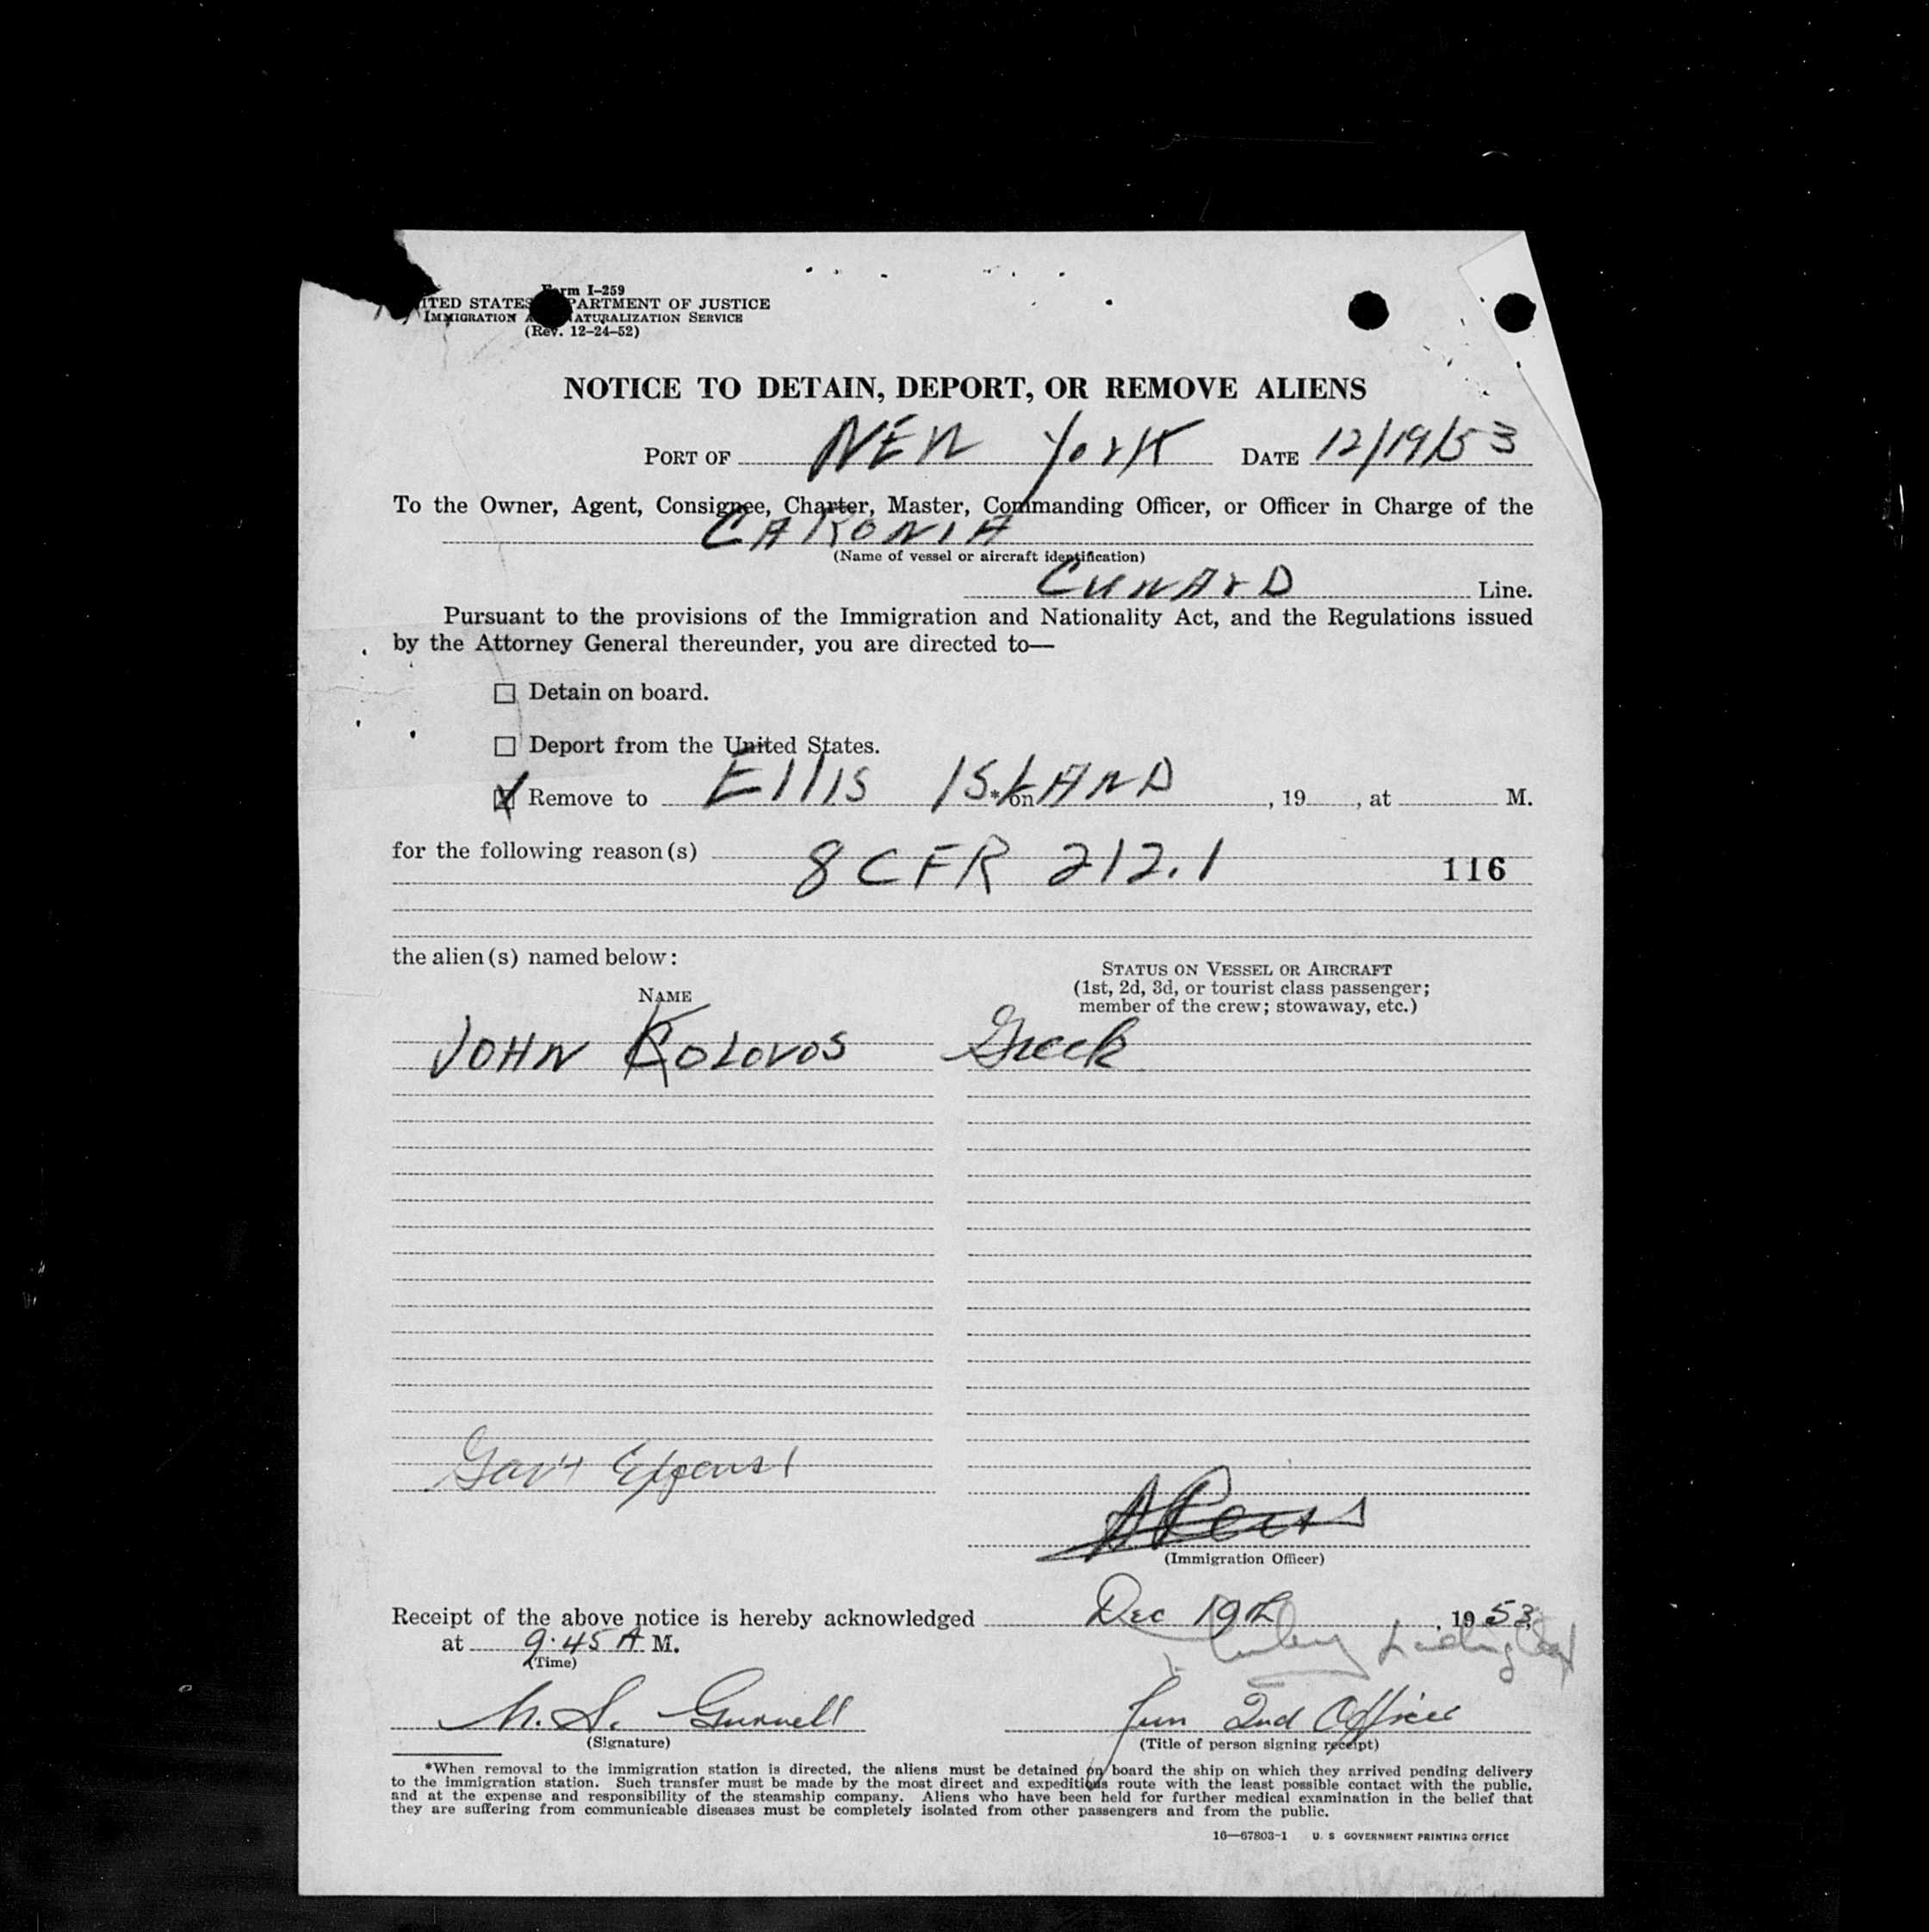 Form I-259
UNITED STATES DEPARTMENT OF JUSTICE
IMMIGRATION AND NATURALIZATION SERVICE
(Rev. 12-24-52)
NOTICE TO DETAIN, DEPORT, OR REMOVE ALIENS
PORT OF NEW YorK DATE 12/19/53
To the Owner, Agent, Consignee, Charter, Master, Commanding Officer, or Officer in Charge of the
CARONIA
(Name of vessel or aircraft identification)
CUNArD Line.
Pursuant to the provisions of the Immigration and Nationality Act, and the Regulations issued
by the Attorney General thereunder, you are directed to—
Detain on board.
Deport from the United States.
Remove to Ellis ISLAND *on , 19 , at M.
for the following reason(s) 8 CFR 212.1
116
the alien(s) named below:
NAME
STATUS ON VESSEL OR AIRCRAFT
(1st, 2d, 3d, or tourist class passenger;
member of the crew; stowaway, etc.)
JOHN KOLOVOS Greek
Gov't Expense
(Immigration Officer)
Receipt of the above notice is hereby acknowledged Dec 19th, 1953,
at 9.45 A M.
(Time)
Jun 2nd Officer
(Signature)
(Title of person signing receipt)
*When removal to the immigration station is directed, the aliens must be detained on board the ship on which they arrived pending delivery
to the immigration station. Such transfer must be made by the most direct and expeditious route with the least possible contact with the public,
and at the expense and responsibility of the steamship company. Aliens who have been held for further medical examination in the belief that
they are suffering from communicable diseases must be completely isolated from other passengers and from the public.
16—67803-1 U. S. GOVERNMENT PRINTING OFFICE